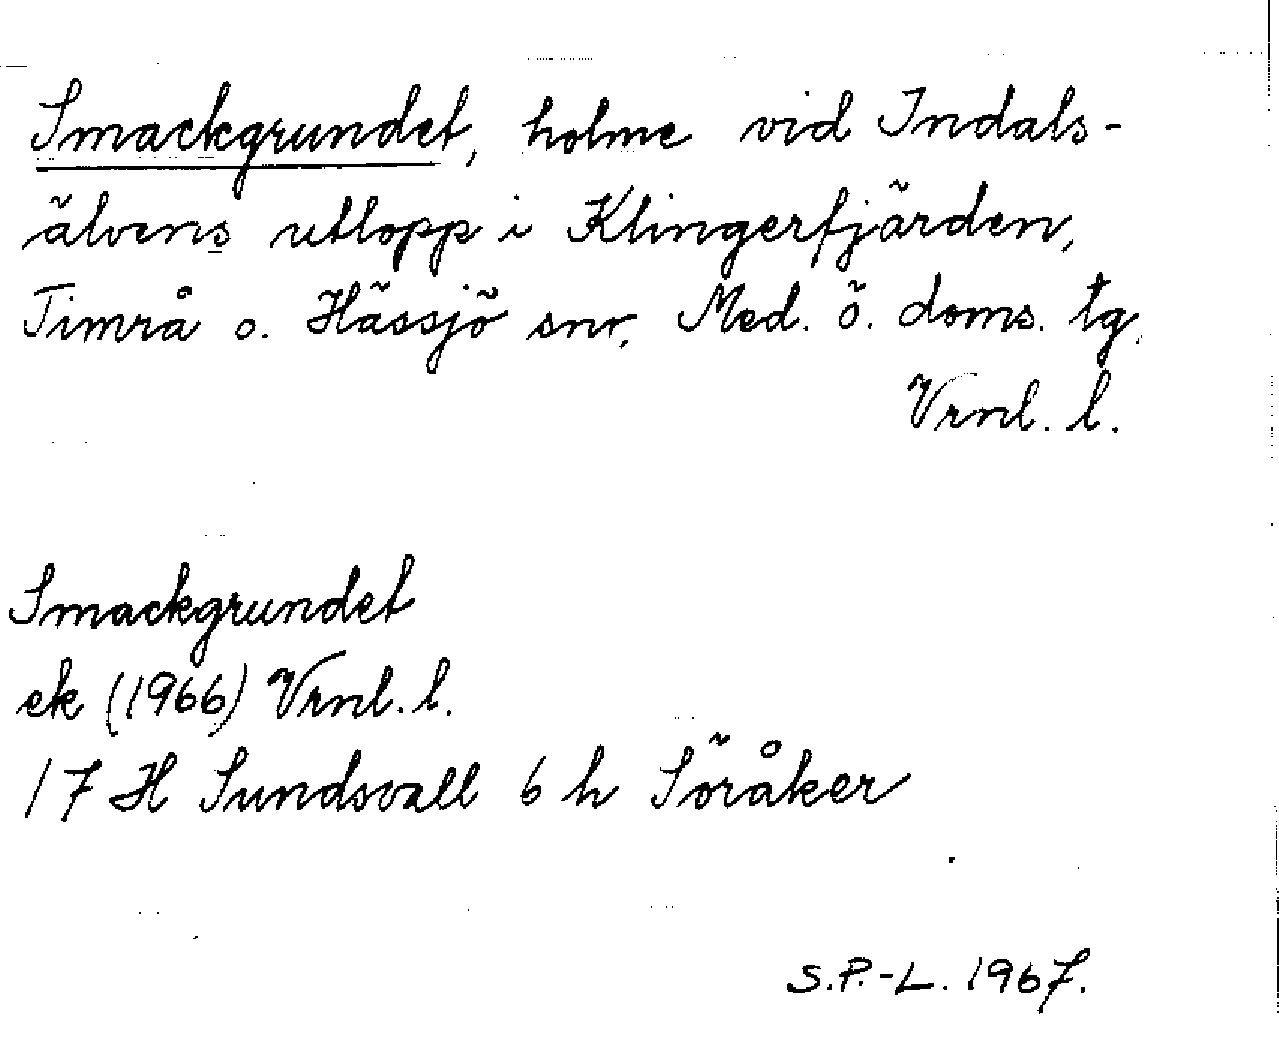 Smackgrundet, holme vid Indals-
älvens utlopp i Klingerfjärden,
Timrå o. Hässjö snr, Med. ö. doms. tg.
Vrnl. l.
Smackgrundet
ek (1966) Vrnl. l.
17 H Sundsvall 6 h Söråker
S.P.-L. 1967.